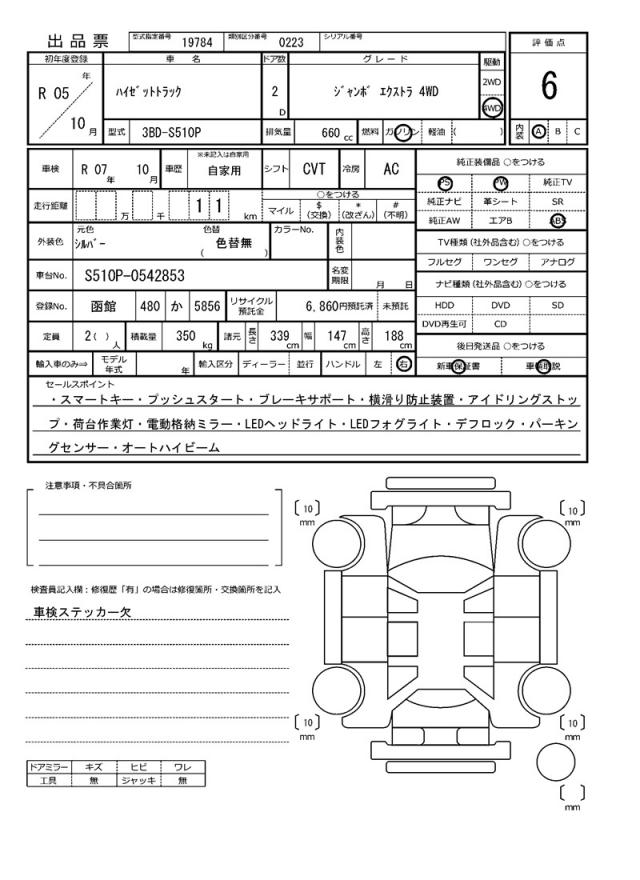 出品票 型式指定番号 19784 類別区分番号 0223 シリアル番号
評価点
6
内装 A B C
初年度登録 車名 ドア数 グレード 駆動
R 05 年 10 月
ﾊｲｾﾞｯﾄﾄﾗｯｸ 2 D ｼﾞｬﾝﾎﾞ ｴｸｽﾄﾗ 4WD
2WD
4WD
型式 3BD-S510P 排気量 660 cc 燃料 ガソリン 軽油 ( )
車検 R 07 年 10 月 車歴 ※未記入は自家用 自家用 シフト CVT 冷房 AC
走行距離 万 千 1 1 km
○をつける
マイル $ (交換) * (改ざん) # (不明)
外装色 元色 ｼﾙﾊﾞｰ 色替 ( 色替無 ) カラーNo. 内装色
車台No. S510P-0542853 名変期限 月 日
登録No. 函館 480 か 5856 リサイクル預託金 6,860円預託済 未預託
定員 2( ) 人 積載量 350 kg 諸元 長さ 339 cm 幅 147 cm 高さ 188 cm
輸入車のみ⇒ モデル年式 年 輸入区分 ディーラー 並行 ハンドル 左 右
純正装備品 ○をつける
PS PW 純正TV
純正ナビ 革シート SR
純正AW エアB ABS
TV種類 (社外品含む) ○をつける
フルセグ ワンセグ アナログ
ナビ種類 (社外品含む) ○をつける
HDD DVD SD
DVD再生可 CD
後日発送品 ○をつける
新車保証書 車輌取説
セールスポイント
・スマートキー・プッシュスタート・ブレーキサポート・横滑り防止装置・アイドリングストッ
プ・荷台作業灯・電動格納ミラー・LEDヘッドライト・LEDフォグライト・デフロック・パーキン
グセンサー・オートハイビーム
注意事項・不具合箇所
検査員記入欄：修復歴「有」の場合は修復箇所・交換箇所を記入
車検ステッカー欠
ドアミラー キズ ヒビ ワレ
工具 無 ジャッキ 無
〔 10 〕 mm
〔 10 〕 mm
〔 10 〕 mm
〔 10 〕 mm
〔 〕 mm